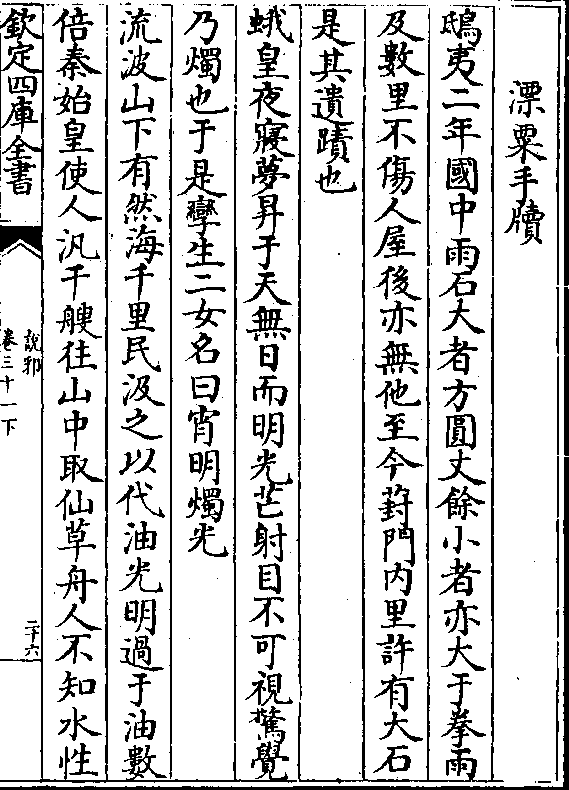 漂粟手牘
鴟夷二年國中雨石大者方圓丈餘小者亦大于拳雨
及數里不傷人屋後亦無他至今葑門内里許有大石
是其遺蹟也
蛾皇夜寢夢昇于天無日而明光芒射目不可視驚覺
乃燭也于是孿生二女名曰宵明燭光
流波山下有然海千里民汲之以代油光明過于油數
倍秦始皇使人汎千艘往山中取仙草舟人不知水性
欽定四庫全書
說郛
卷三十一下
二十六